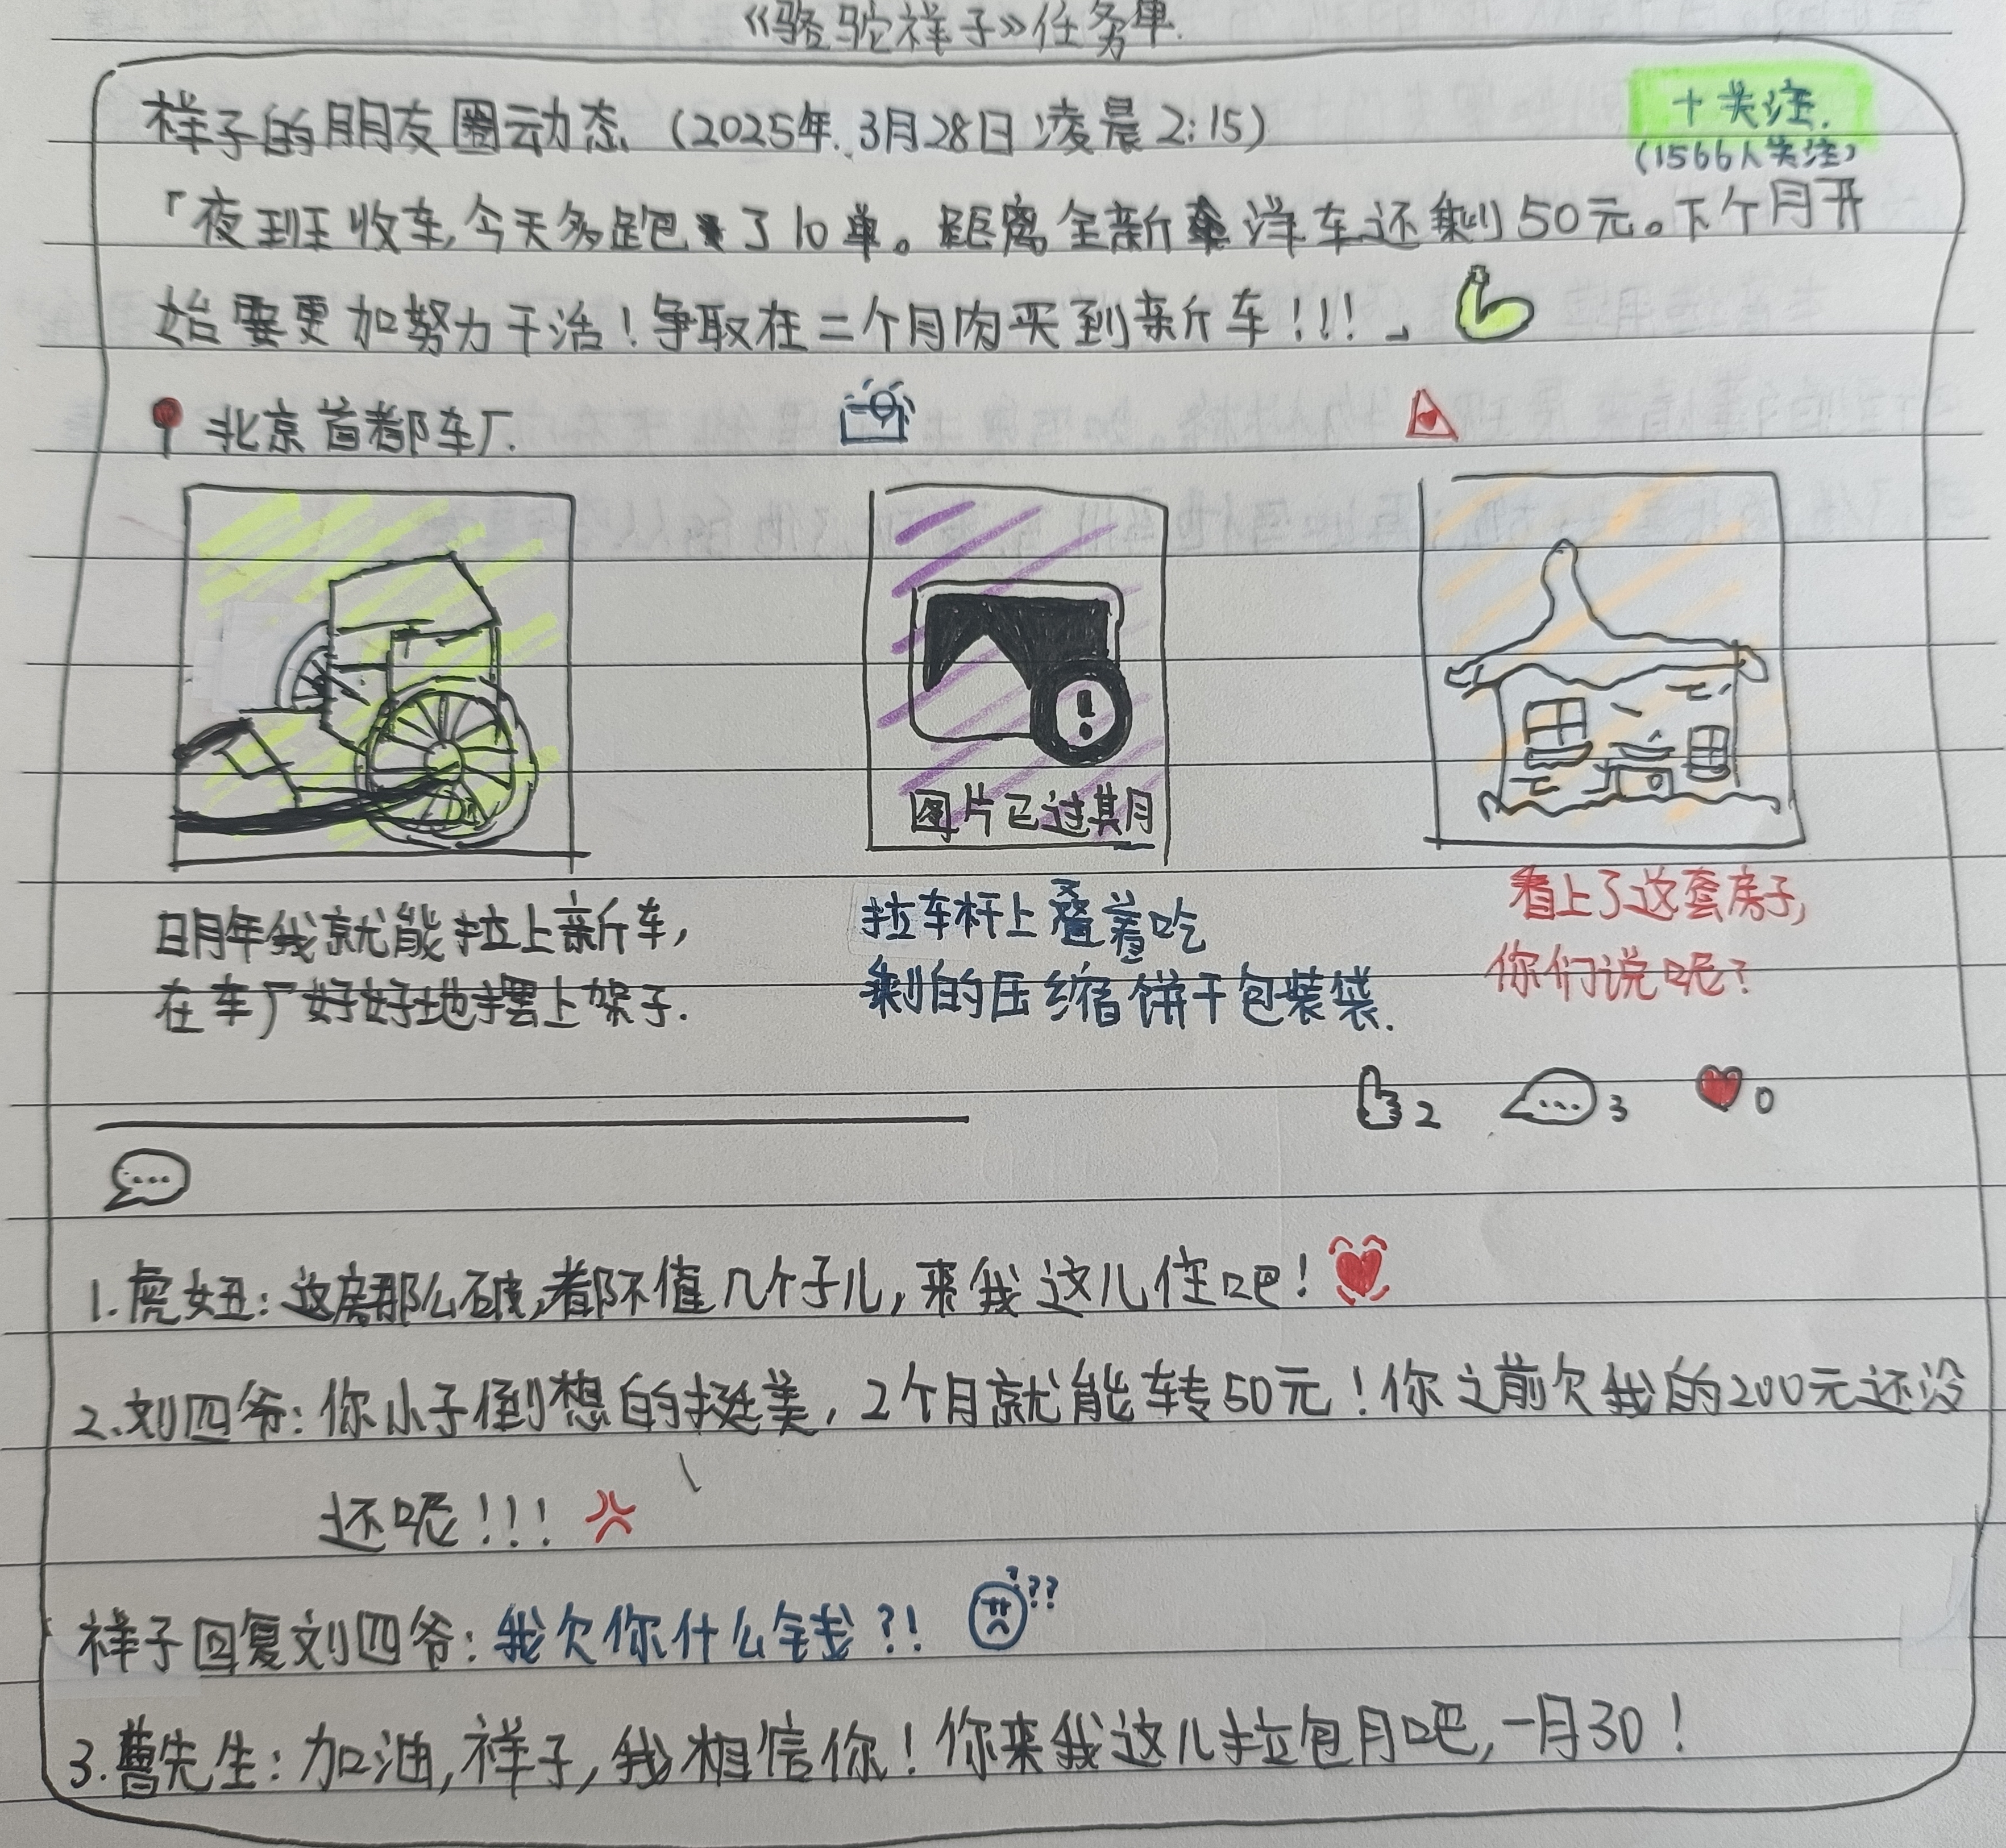 《骆驼祥子》任务单
祥子的朋友圈动态（2025年.3月28日凌晨2:15）
十关注.
（1566人关注）
「夜班收车,今天多跑了10单。距离全新洋车还剩50元。下个月开
始要更加努力干活！争取在二个月内买到新车!!!」
北京首都车厂.
图片已过期
明年我就能拉上新车,
在车厂好好地摆上架子.
拉车杆上叠着吃
剩的压缩饼干包装袋.
看上了这套房子,
你们说呢?
2
3
0
1.虎妞:这房那么破,都不值几个子儿,来我这儿住吧!
2.刘四爷:你小子倒想的挺美,2个月就能转50元!你之前欠我的200元还没
还呢!!!
祥子回复刘四爷:我欠你什么钱?! ???
3.曹先生:加油,祥子,我相信你!你来我这儿拉包月吧,一月30!